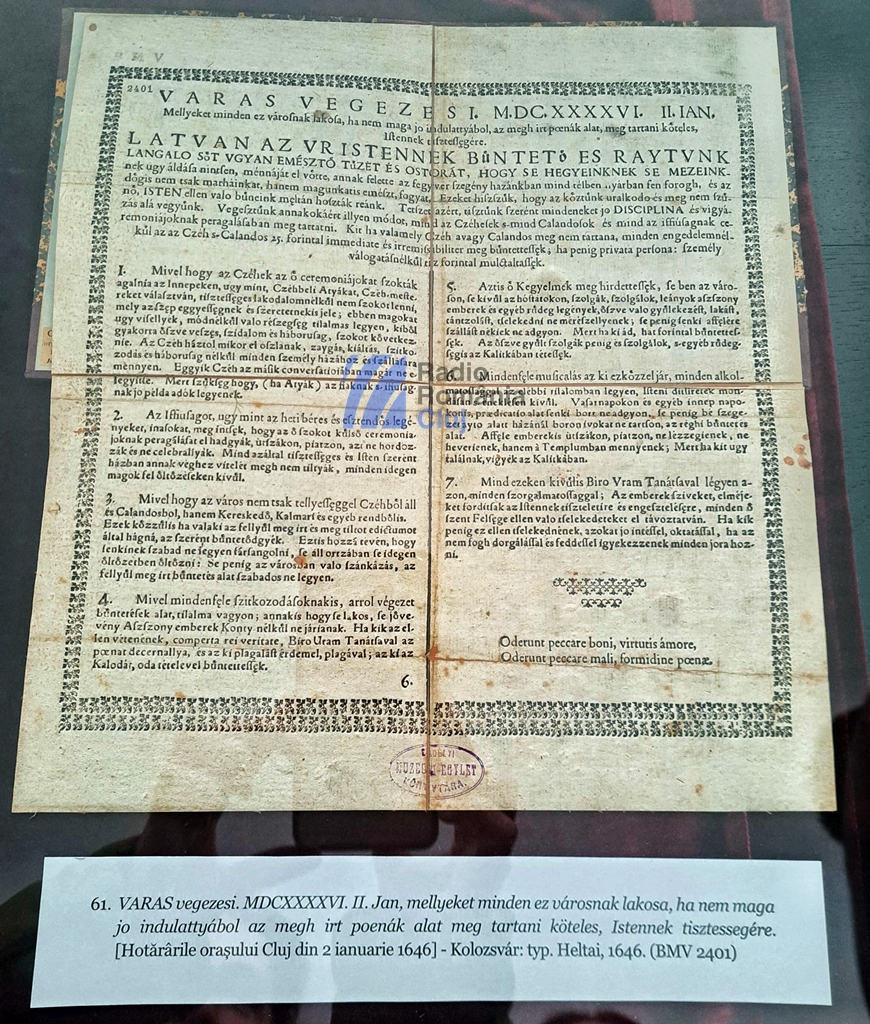 B M V
2401
VARAS VEGEZESI. M.DC.XXXXVI. II. IAN.
Mellyeket minden ez városnak lakosa, ha nem maga jo indulattyából, az megh irt poenák alat, meg tartani köteles,
Istennek tisztessegére.
LATVAN AZ VR ISTENNEK BŰNTETŐ ES RAYTVNK
LANGALO SŐT VGYAN EMÉSZTŐ TŰZÉT ÉS OSTORÁT, HOGY SE HEGYEINKNEK SE MEZEINK-
nek ugy áldása nintsen, mennáját el vötte, annak felette az fegyver szegény hazánkban mind télben nyárban fen forogh, és az
dögis nem tsak marháinkat, hanem magunkatis emészt, fogyat. Ezeket hiszszük, hogy az köztünk uralkodo és meg nem szü-
nő, ISTEN ellen valo búneink méltán hoszták reánk. Tetszet azért, tisztünk szerént mindeneket jo DISCIPLINA és vigyá-
zás alá vegyünk. Vegesztünk annakokáért illyen módot, mind az Czéhesek s-mind Calandosok és mind az iffiuságnak ce-
remoniájoknak peragalásában meg tartatni. Kit ha valamely Czéh avagy Calandos meg nem tartana, minden engedelemnél-
kül az az Czéh s-Calandos 25. forintal immediate és irremissibiliter meg bűntettessék; ha penig privata persona: személy
válogatásnélkül 12 forintal mulctaltassék.
1. Mivel hogy az Czéhek az ő ceremoniájokat szokták
agalnia az Innepeken, ugy mint, Czéhbeli Atyákat, Czéh-meste-
reket választván, tisztességes lakodalomnélkül nem szokot lenni,
mely az szép eggyességnek és szeretetnekis jele; ebben magokat
ugy visellyek, módnélkül valo részegség tilalmas legyen, kiből
gyakorta öszve veszes, szidalom és háboruság, szokot következ-
nie. Az Czéh háztol mikor el oszlanak, zaygás, kiáltás, szitko-
zodás és háboruság nélkül minden személy házához és szállására
mennyen. Eggyik Czéh az másik conversatioiban magát ne e-
legyittse. Mert szükség hogy, (ha Atyák) az fiaknak s-iffiuság-
nak jo példa adok legyenek.
2. Az Iffiuságot, ugy mint az heti béres és esztendős legé-
nyeket, inasokat, meg intsék, hogy az ő szokot külső ceremonia-
joknak peragálását el hadgyák, útszákon, piatzon, azt ne hordoz-
zák és ne celebrallyák. Mind azáltal tisztességes és Isten szerént
házban annak véghez vitelét megh nem tiltyák, minden idegen
magok fel öltözéseken kivűl.
3. Mivel hogy az város nem tsak tellyességgel Czéhből áll
és Calandosbol, hanem Kereskedő, Kalmár és egyeb rendbölis.
Ezek közzülis ha valaki az fellyűl meg irt és meg tiltot edictumot
által hágná, az szerént bűntetődgyék. Eztis hozzá tevén, hogy
senkinek szabad ne legyen farsangolni, se áll ortzában se idegen
öltözetben öltözni: Se penig az városban valo szánkázás, az
fellyűl meg irt bűntetés alat szabados ne legyen.
4. Mivel mindenféle szitkozodásoknakis, arrol végezet
bűntetések alat, tilalma vagyon; annakis hogy se lakos, se jöve-
vény Aszszony emberek Konty nélkűl ne járianak. Ha kik az el-
len vétenének, comperta rei veritate, Biro Uram Tanátsaval az
pœnat decernallya, és az ki plagálást érdemel, plagával; az ki az
Kalodár, oda tételevel bűntettessék.
6.
5. Aztis ő Kegyelmek meg hirdettessék, se ben az váro-
son, se kivűl az hostátokon, szolgák, szolgálok, leányok aszszony
emberek és egyéb rűdeg legények, öszve valo gyűlekezést, lakást,
tántzolást, tselekedni ne merészellyenek; se penig senki affélére
szállást nékiek ne adgyon. Mert ha ki ád, hat forintal bűntettes-
sék. Az öszve gyűlt szolgák penig és szolgálok, s-egyéb rűdeg-
ségis az Kalitkában tétessék.
6. Mindenféle musicalás az ki ezközzel jár, minden alkol-
7. Mind ezeken kivűlis Biro Vram Tanátsaval légyen a-
zon, minden szorgalmatossaggal; Az emberek sziveket, elméje-
ket fordítsák az Istennek tiszteletire és engesztelésre, minden ő
szent Felsége ellen valo tselekedeteket el távoztatván. Ha kik
penig ez ellen tselekednének, azokat jo intéssel, oktatással, ha az
nem fogh dorgálással és feddéssel igyekezzenek minden jora hoz-
ni.
Oderunt peccare boni, virtutis ámore,
Oderunt peccare mali, formidine pœnæ.
ERDÉLYI
MUZEUM-EGYLET
KÖNYVTÁRA.
Radio
România
Cluj
61. VARAS vegezesi. MDCXXXXVI. II. Jan, mellyeket minden ez városnak lakosa, ha nem maga
jo indulattyábol az megh irt poenák alat meg tartani köteles, Istennek tisztessegére.
[Hotărârile orașului Cluj din 2 ianuarie 1646] - Kolozsvár: typ. Heltai, 1646. (BMV 2401)